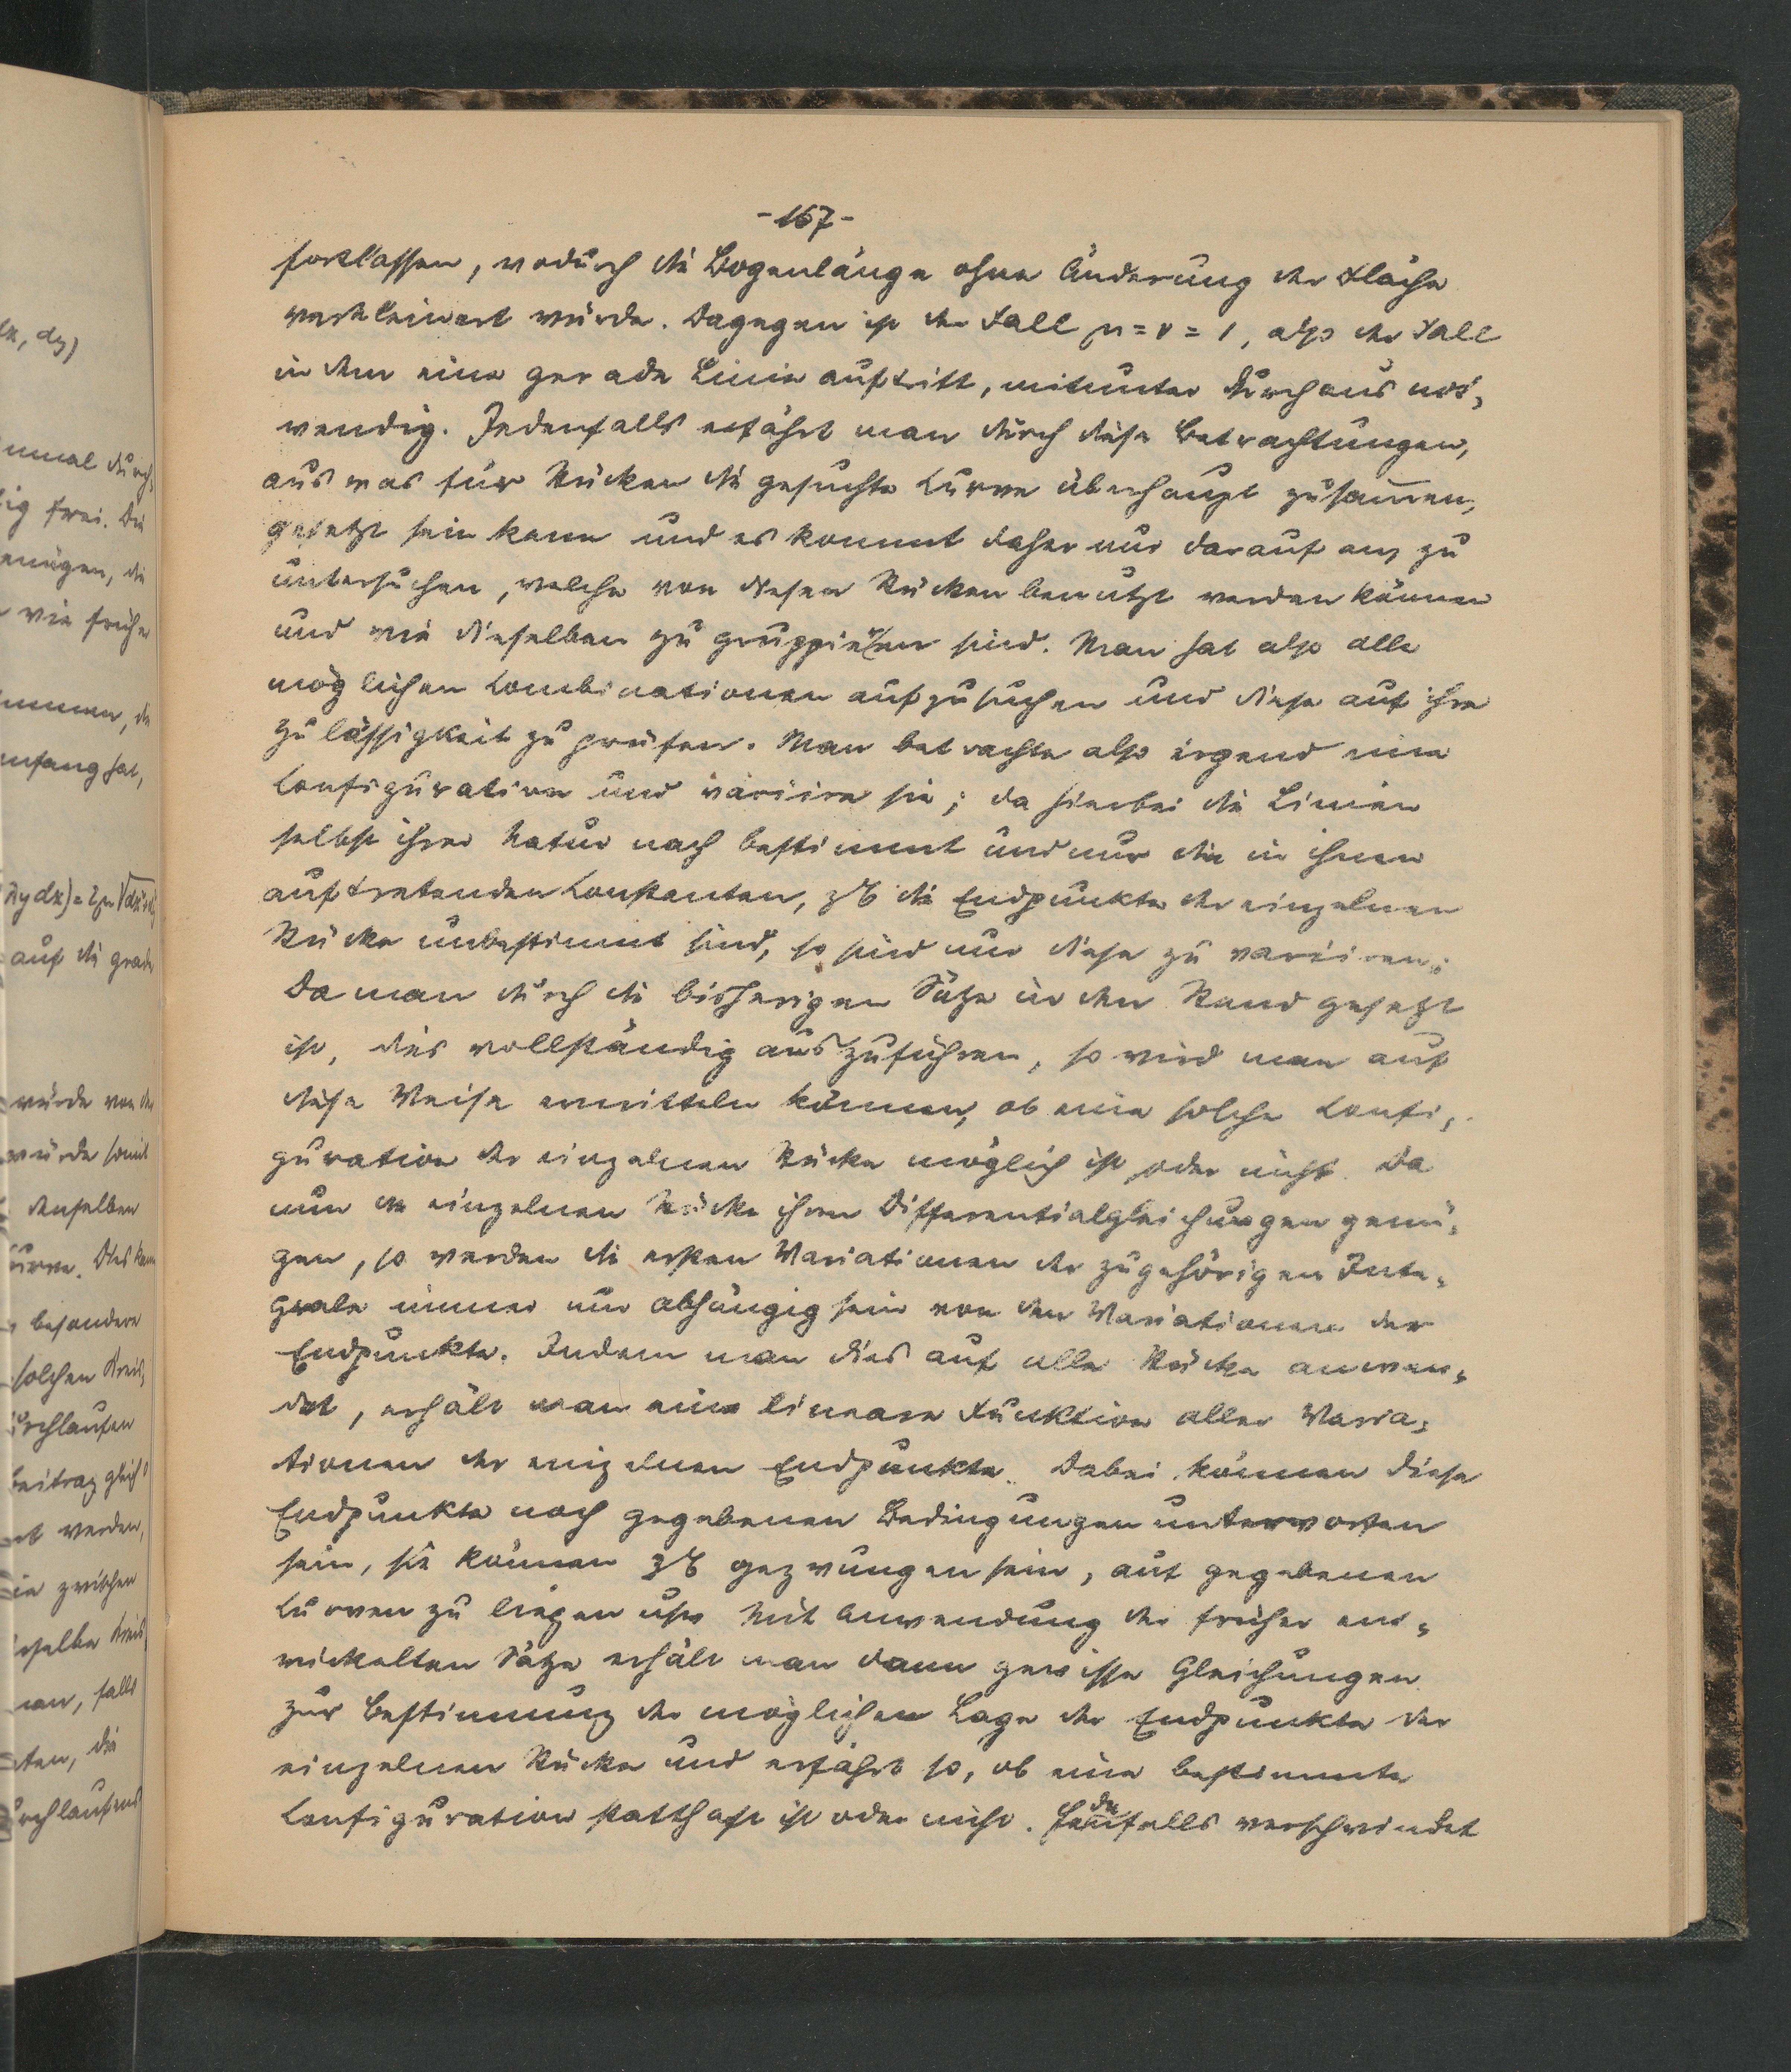 -167-
fortlassen, wodurch die Bogenlänge ohne Änderung der Fläche
verkleinert würde. Dagegen ist der Fall μ = ν = 1, also der Fall
in dem eine gerade Linie auftritt, mitunter durchaus not,
wendig. Jedenfalls erfährt man durch diese Betrachtungen,
aus was für Stücken die gesuchte Curve überhaupt zusammen,
gesetzt sein kann und es kommt daher nur darauf an, zu
untersuchen, welche von diesen Stücken benutzt werden können
und wie dieselben zu gruppieren sind. Man hat also alle
möglichen Combinationen aufzusuchen und diese auf ihre
Zulässigkeit zu prüfen. Man betrachte also irgend eine
Configuration und variire sie; da hierbei die Linien
selbst ihrer Natur nach bestimmt und nur die in ihnen
auftretenden Constanten, zB die Endpunkte der einzelnen
Stücke unbestimmt sind, so sind nur diese zu variiren.
Da man durch die bisherigen Sätze in den Stand gesetzt
ist, dies vollständig auszuführen, so wird man auf
diese Weise ermitteln können, ob eine solche Confi,
guration der einzelnen Stücke möglich ist oder nicht. Da
nun die einzelnen Stücke ihren Differentialgleichungen genü,
gen, so werden die ersten Variationen der zugehörigen Inte,
grale immer nur abhängig sein von den Variationen der
Endpunkte. Indem man dies auf alle Stücke anwen,
det, erhält man eine lineare Funktion aller Varia,
tionen der einzelnen Endpunkte. Dabei können diese
Endpunkte noch gegebenen Bedingungen unterworfen
sein, sie können zB gezwungen sein, auf gegebenen
Curven zu liegen usw. Mit Anwendung der früher ent,
wickelten Sätze erhält man dann gewisse Gleichungen
zur Bestimmung der möglichen Lage der Endpunkte der
einzelnen Stücke und erfährt so, ob eine bestimmte
Configuration statthaft ist oder nicht. Jedenfalls verschwindet
dx, dy)
nmal durch,
ig frei. Die
enügen, die
wie früher
mmen, die
nfang hat,
auf die grade
würde von der
würde somit
denselben
Curve. Dies kann
besondere
solchen Kreis,
urchlaufen
Beitrag gleich 0
werden,
zwischen
rselbe Kreis,
man, falls
ten, die
rchlaufens